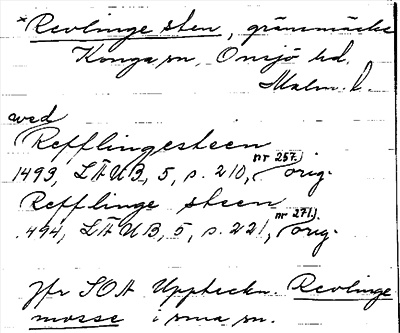 *Revlinge sten, gränsmärke
Konga sn, Onsjö hd.
Malm. l.
wed
Refflingesteen
1493, LÄUB, 5, s. 210, nr 257.) orig.
Refflinge steen
1494, LÄUB, 5, s. 221, nr 271.) orig.
Jfr SOA Uppteckn. Revlinge
mosse i sma sn.